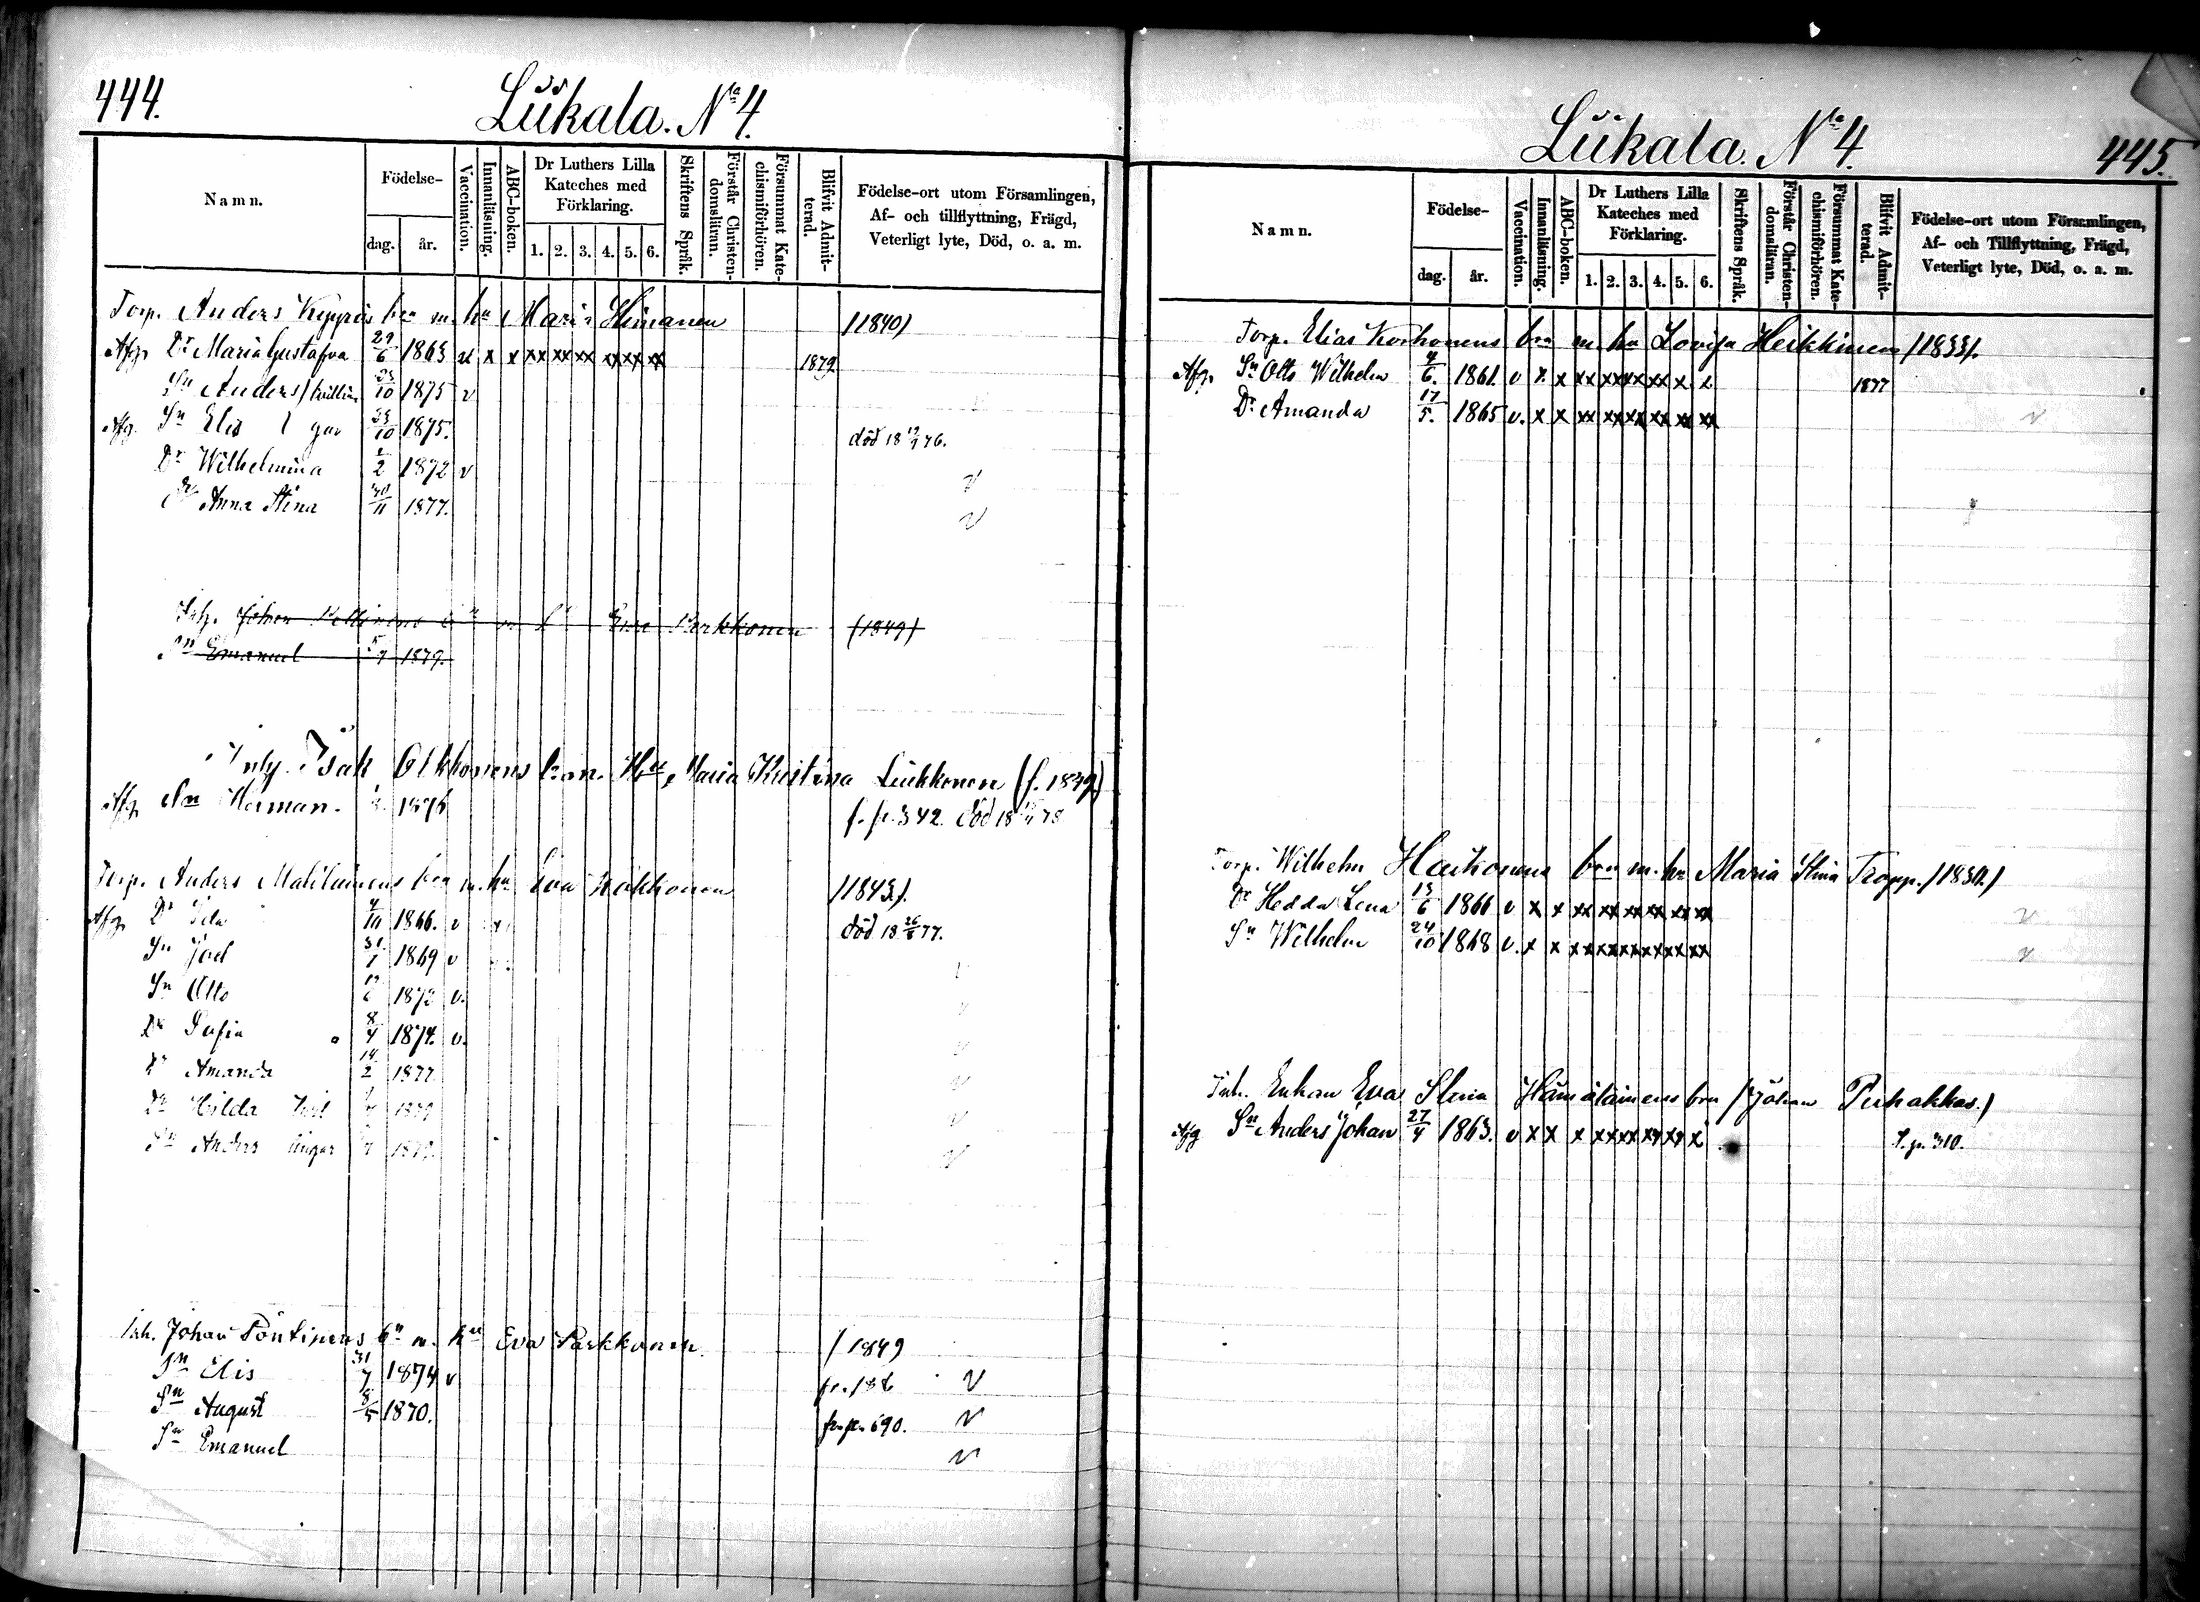 444.
Liikala. No 4.
Namn.
Födelse-
dag.
år.
Vaccination.
Innanläsning.
ABC-boken.
Dr Luthers Lilla
Kateches med
Förklaring.
1. 2. 3. 4. 5. 6.
Skriftens Språk.
Förstår Christen-
domsläran.
Försummat Kate-
chismiförhören.
Blifvit Admit-
terad.
Födelse-ort utom Församlingen,
Af- och tillflyttning, Frägd,
Veterligt lyte, Död, o. a. m.
Torp. Anders brn m. hu Maria Himanen /1840/
Afg. Dr Maria Gustafva 29/6 1863 v x x xx xx xx xx xx xx 1879
Sn Anders 23/10 1875 v
Afg. Sn Elis 23/10 1875. död 18 76.
Dr Wilhelmina 2 1872 v v
Dr Anna Stina 30/11 1877. v
Inh. Johan Eva Parkkonen (1849)
Sn Emanuel 5/7 1879.
Inhy. Isak Olkkonens brn m. Hu Maria Kristina Leinkkonen (f. 1849)
Afg. Sn Herman. 1876 f. p. 342. död 18 78
Torp. Anders brn m. hu Eva /1843/.
Afg. Dr Ida 4/10 1866. v död 18 26/6 77.
Sn Joel 31/1 1869 v
Sn Otto 1872 v.
Dr Sofia 8/4 1874. v.
Dr Amanda 14/2 1877
Dr Hilda 1879
Sn Anders 1879.
Inh. Johan Pöntinens bn m. hu Eva Parkkonen. /1849
Sn Elis 31/7 1874 v v
Sn August 8/5 1870. fr. p. 690. v
Sn Emanuel v
Liikala. No 4.
445.
Namn.
Födelse-
dag.
år.
Vaccination.
Innanläsning.
ABC-boken.
Dr Luthers Lilla
Kateches med
Förklaring.
1. 2. 3. 4. 5. 6.
Skriftens Språk.
Förstår Christen-
domsläran.
Försummat Kate-
chismiförhören.
Blifvit Admit-
terad.
Födelse-ort utom Församlingen,
Af- och Tillflyttning, Frägd,
Veterligt lyte, Död, o. a. m.
Torp. Elias Korhonens brn m. hu Lovisa Heikkinen /1833/.
Afg. Sn Otto Wilhelm 4/6. 1861. v x x xx xx xx xx x x 1877
Dr Amanda 17/5. 1865 v. x x xx xx xx xx xx xx v
Torp. Wilhelm brn m. hu Maria Stina Tropp. /1830./
Dr Hedda Lena 13/6 1866 v x x xx xx xx xx xx xx v
Sn Wilhelm 24/10 1868 v. x x xx xx xx xx xx xx v
Inh. Enkan Eva Stina Hämäläinens brn /Johan Puhakkas./
Afg Sn Anders Johan 27/4 1863. v x x x xx xx xx xx x S. p. 310.